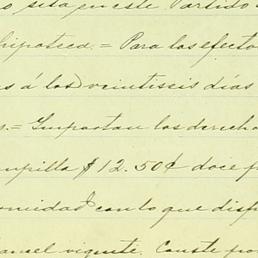 sita en este Partido
hipoteca. = Para los efecto
s á los veintiseis días
s. = Importan los derecho
upilla $12.50¢ doce p
ormidad con lo que disp
ancel vigente. Conste po